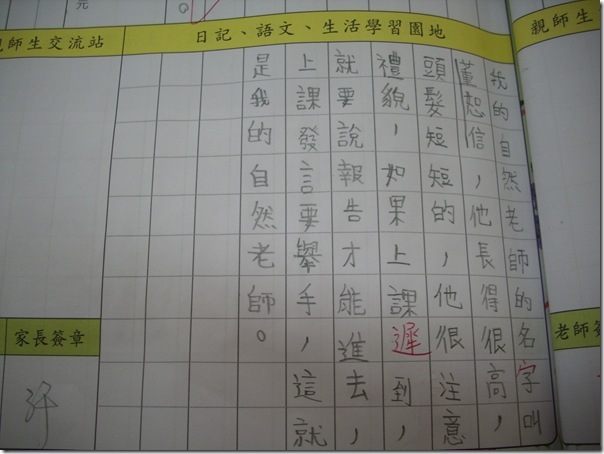 元
。
日記、語文、生活學習園地
親師生交流站
親師生
我的自然老師的名字叫
董恕信，他長得很高，
頭髮短短的，他很注意
禮貌，如果上課遲到，
就要說報告才能進去，
上課發言要舉手，這就
是我的自然老師。
家長簽章
許
老師簽